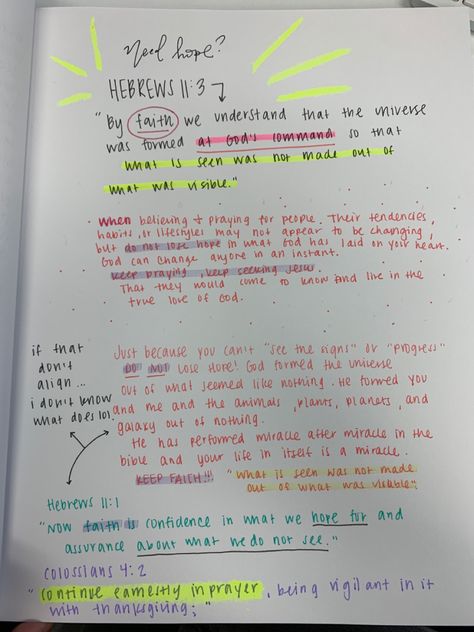 need hope?
HEBREWS 11:3
"By faith we understand that the universe
was formed at God's command so that
what is seen was not made out of
what was visible."
when believing + praying for people. Their tendencies,
habits, or lifestyles may not appear to be changing,
but do not lose hope in what God has laid on your heart.
God can change anyone in an instant.
keep praying, keep seeking Jesus.
That they would come to know and live in the
true love of God.
if that
don't
align...
i don't know
what does lol
Just because you can't "see the signs" or "progress"
DO NOT LOSE HOPE! God formed the universe
out of what seemed like nothing. He formed you
and me and the animals, plants, planets, and
galaxy out of nothing.
He has performed miracle after miracle in the
bible and your life in itself is a miracle.
KEEP FAITH!!! "what is seen was not made
out of what was visible".
Hebrews 11:1
"Now faith is confidence in what we hope for and
assurance about what we do not see."
Colossians 4:2
"Continue earnestly in prayer, being vigilant in it
with thanksgiving;"